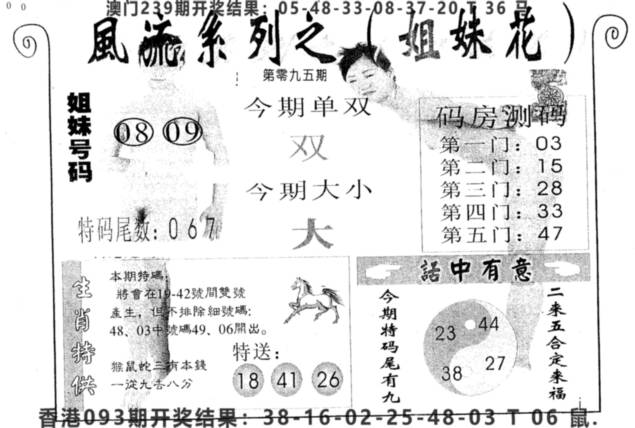 澳门239期开奖结果：05-48-33-08-37-20 T 36 马
風流系列之（姐妹花）
第零九五期
姐妹号码
08 09
特码尾数：067
今期单双
双
今期大小
大
码房测码
第一门：03
第二门：15
第三门：28
第四门：33
第五门：47
生肖特供
本期特碼：
將會在19-42號間雙號
產生，但不排除細號碼：
48、03中號碼49、06開出。
猴鼠蛇三有本錢
一淀九去八分
特送：
18 41 26
話中有意
今期特码尾有九
23 44
38 27
二来五合定来福
香港093期开奖结果：38-16-02-25-48-03 T 06 鼠.